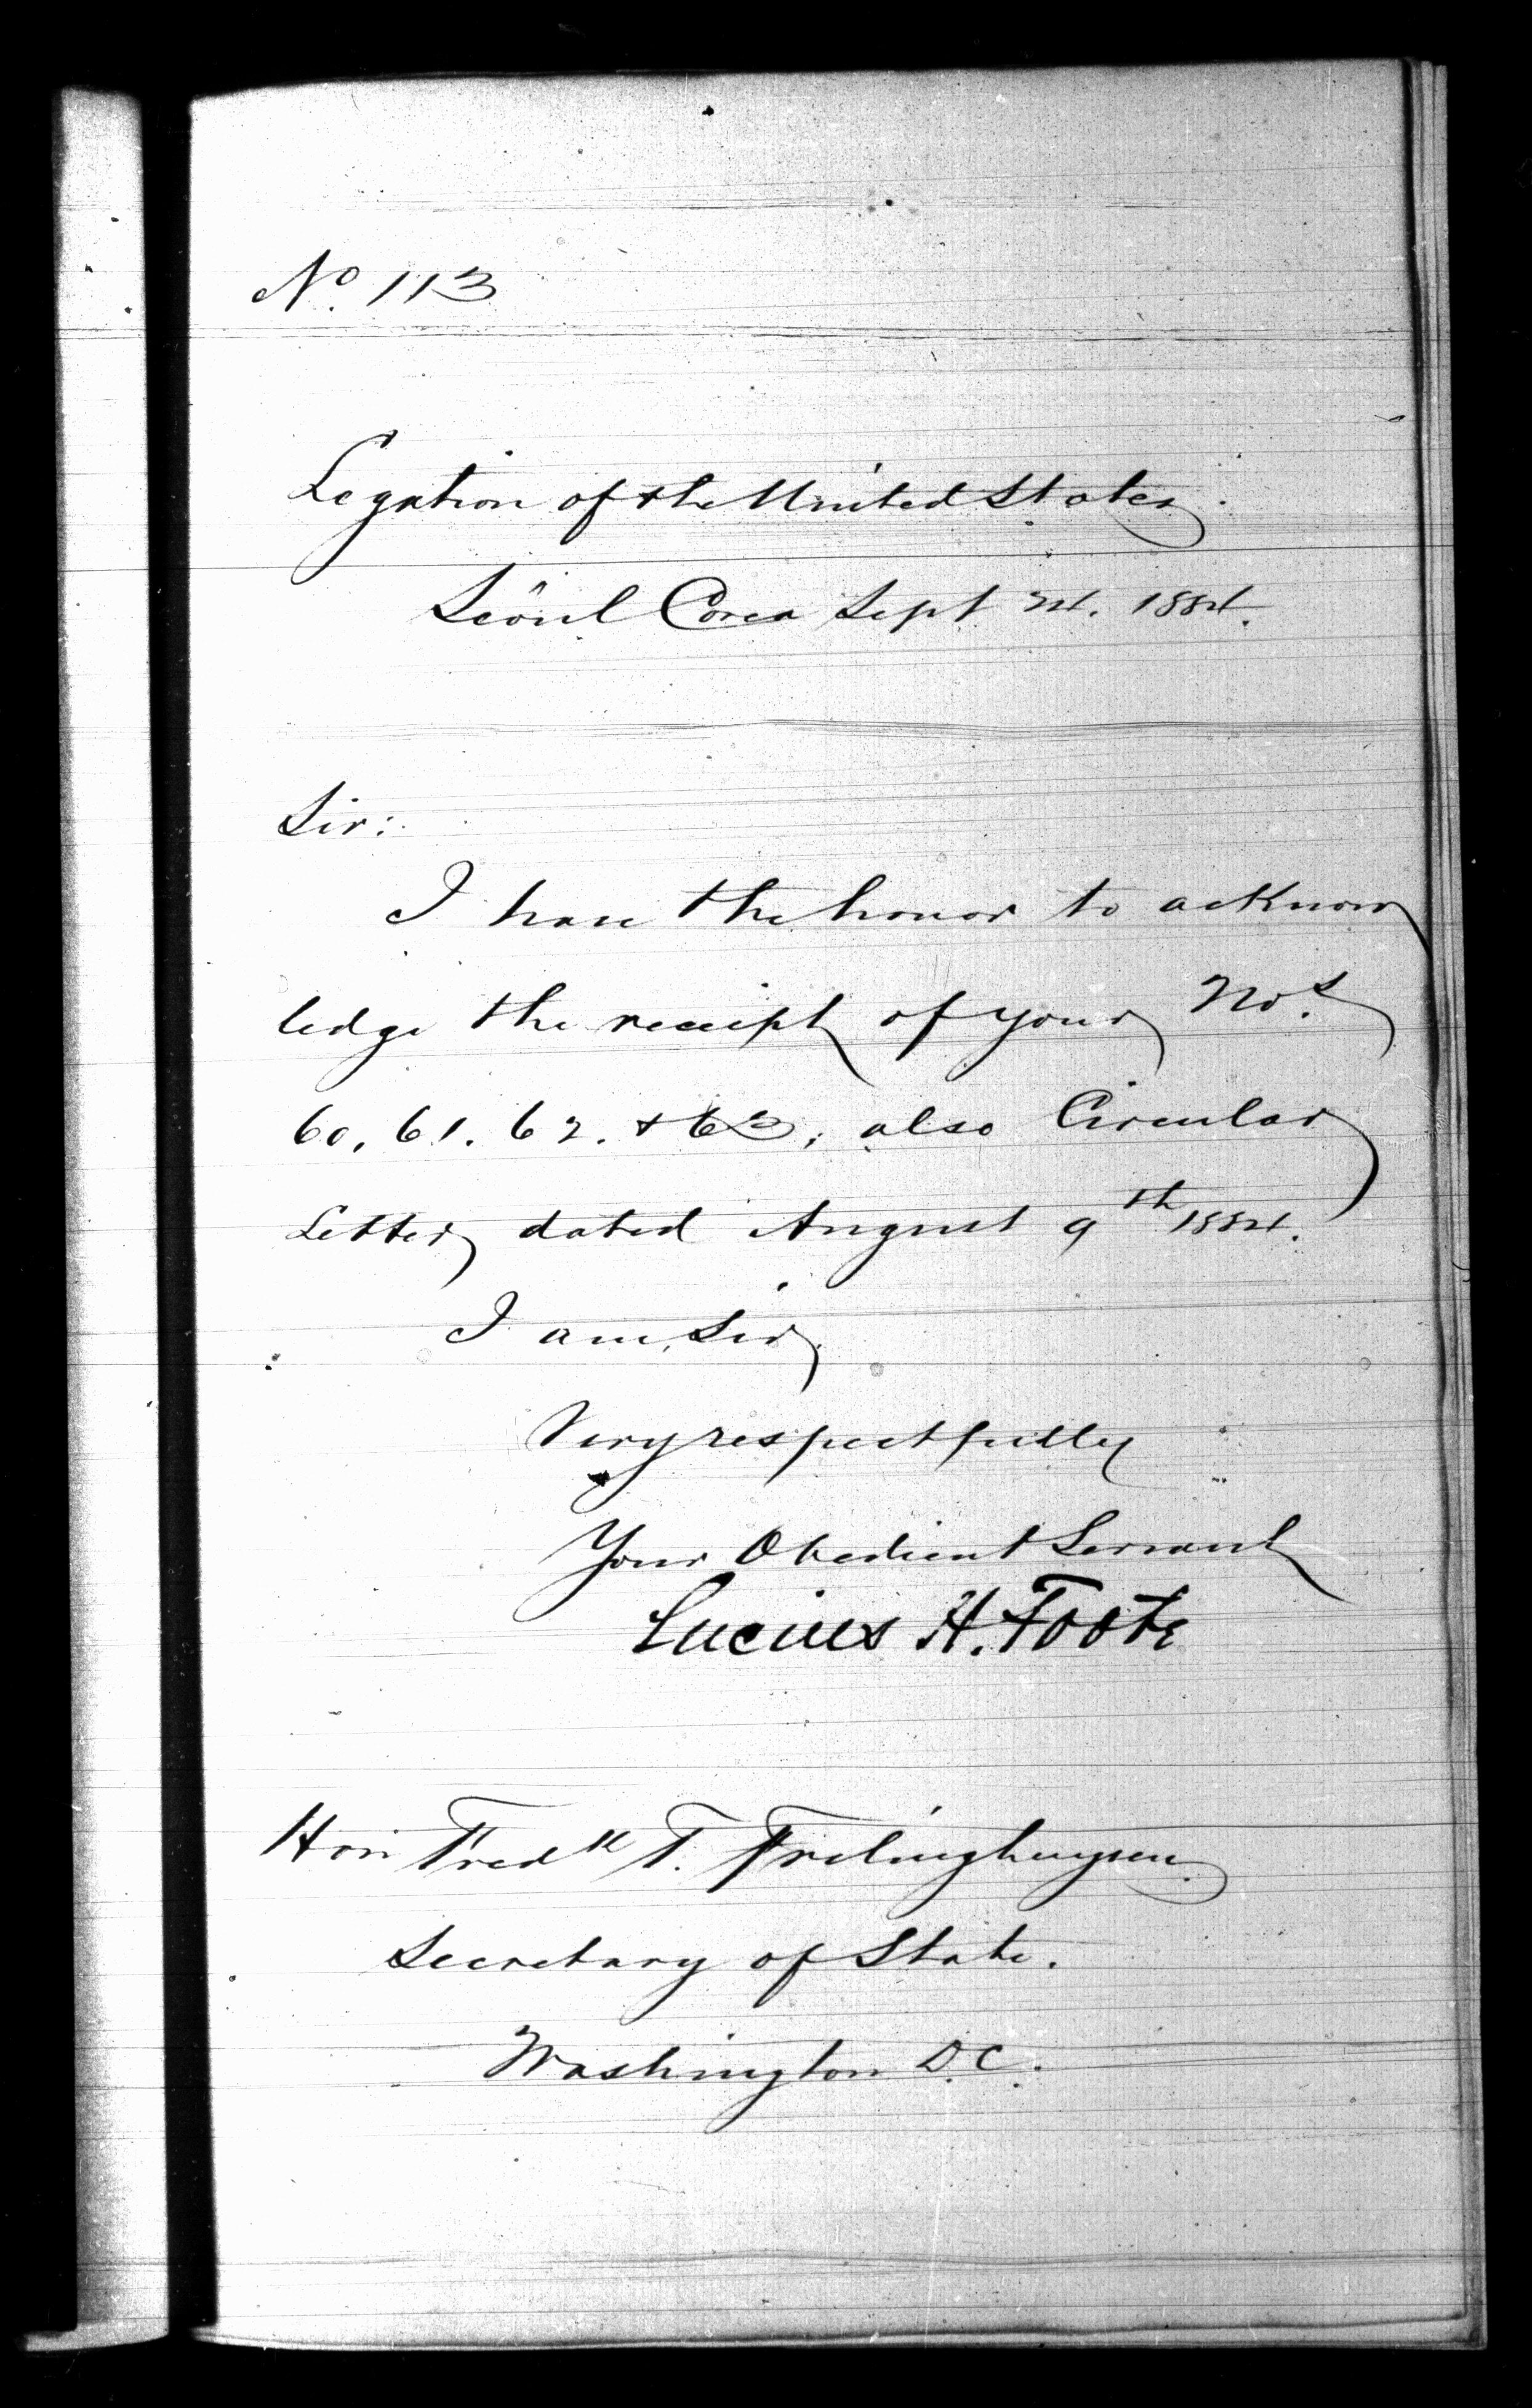 No. 113
Legation of the United States.
Seöul Corea Sept 24. 1884.
Sir:
I have the honor to acknow
ledge the receipt of your Nos.
60, 61. 62. & 63; also Circular
Letter dated August 9th 1884.
I am, Sir,
Very respectfully
Your Obedient Servant
Lucius H. Foote
Hon Fredk T. Frelinghuysen.
Secretary of State.
Washington D.C.